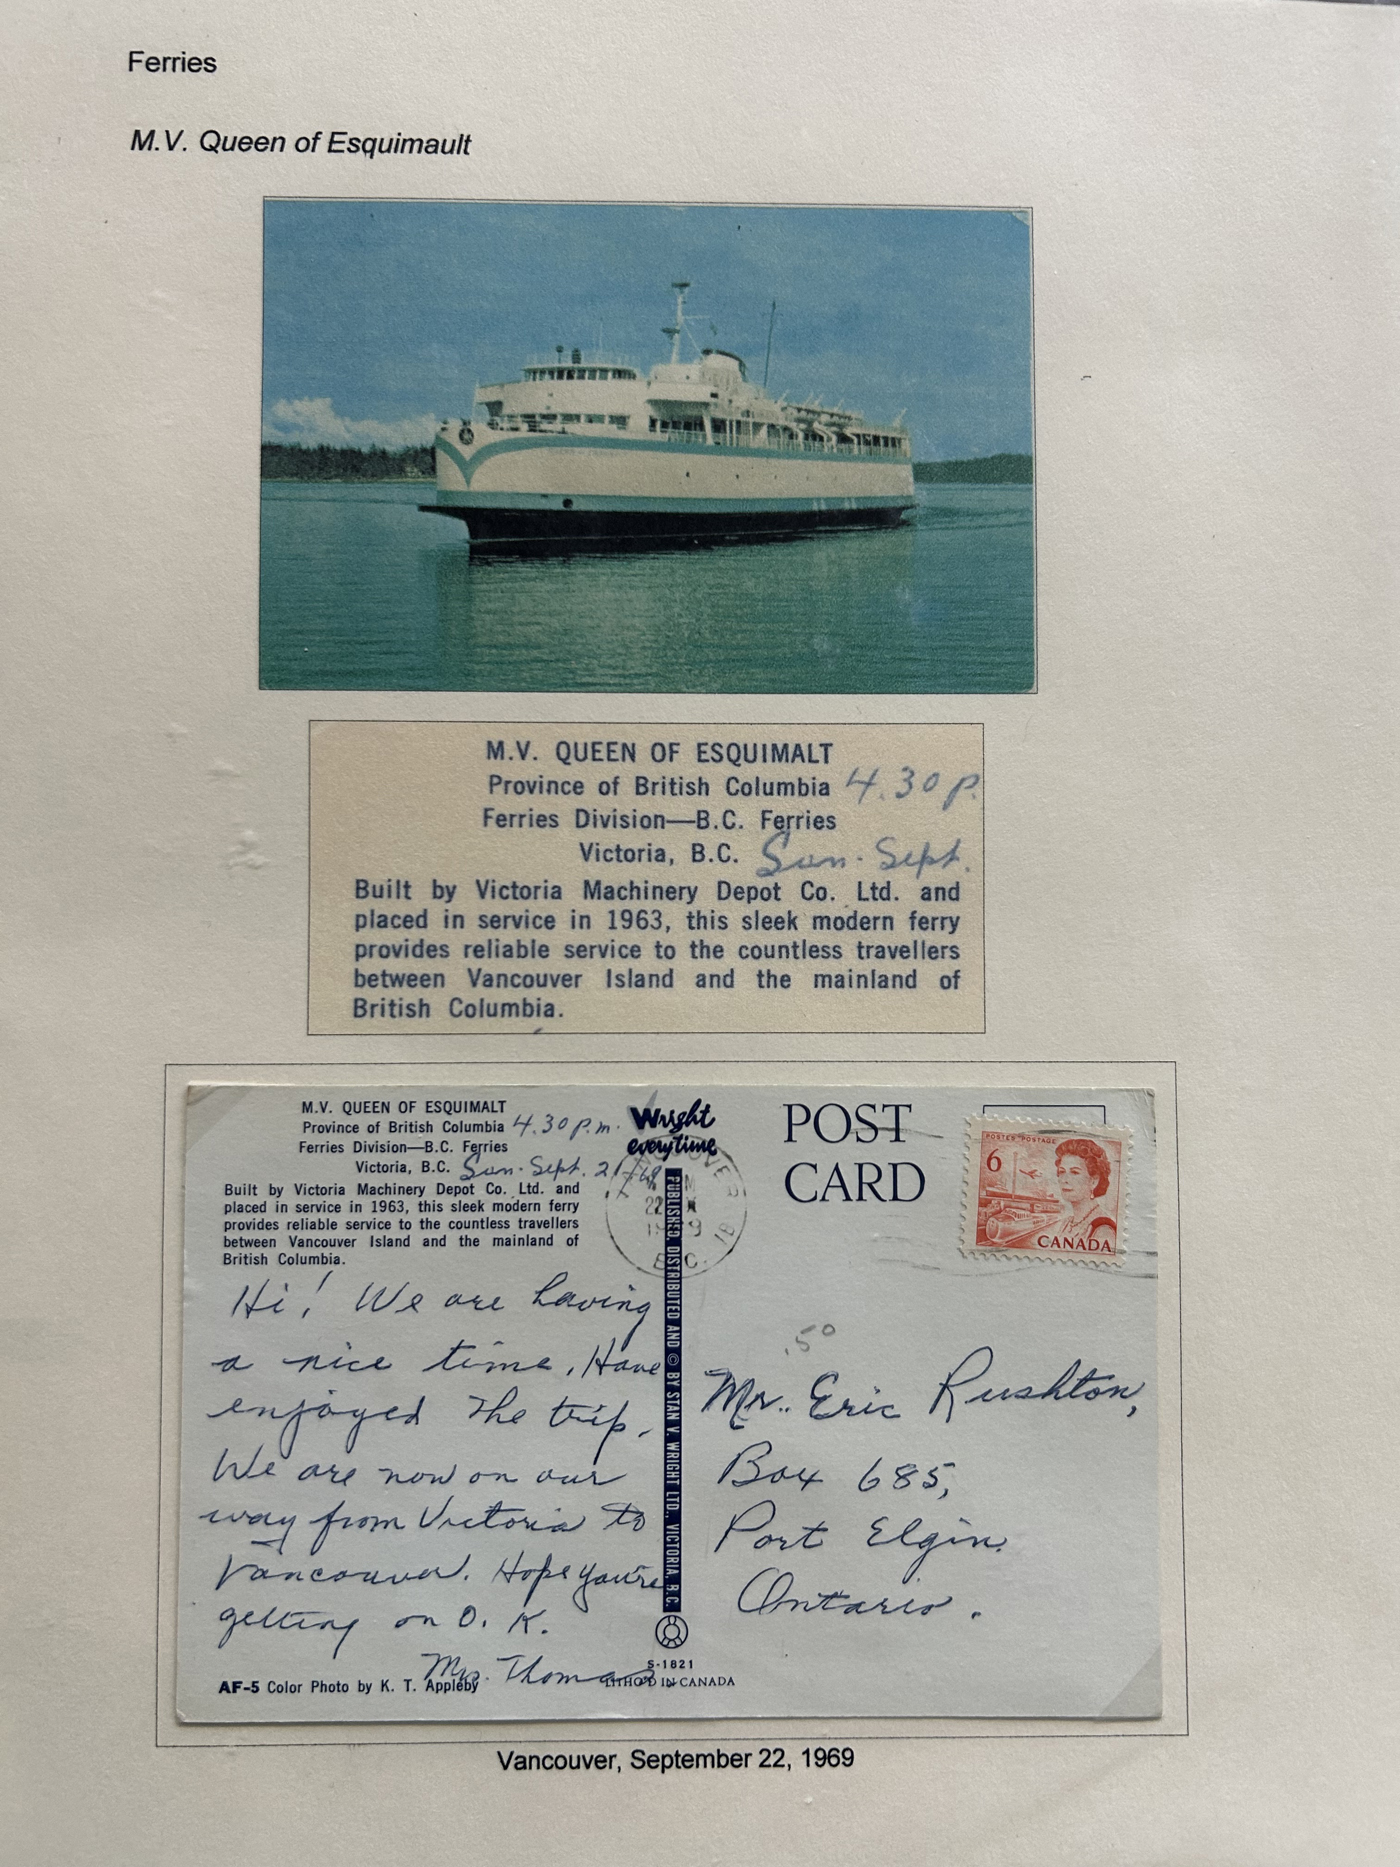 Ferries
M.V. Queen of Esquimault
M.V. QUEEN OF ESQUIMALT
Province of British Columbia 4.30 p.
Ferries Division—B.C. Ferries
Victoria, B.C. Sun. Sept.
Built by Victoria Machinery Depot Co. Ltd. and
placed in service in 1963, this sleek modern ferry
provides reliable service to the countless travellers
between Vancouver Island and the mainland of
British Columbia.
M.V. QUEEN OF ESQUIMALT
Province of British Columbia 4.30 p.m.
Ferries Division—B.C. Ferries
Victoria, B.C. Sun. Sept. 21/69
Built by Victoria Machinery Depot Co. Ltd. and
placed in service in 1963, this sleek modern ferry
provides reliable service to the countless travellers
between Vancouver Island and the mainland of
British Columbia.
Hi! We are having
a nice time. Have
enjoyed the trip.
We are now on our
way from Victoria to
Vancouver. Hope you're
getting on O.K.
Mrs. Thomas
AF-5 Color Photo by K. T. Appleby
Wright
everytime
PUBLISHED, DISTRIBUTED AND © BY STAN V. WRIGHT LTD., VICTORIA, B.C.
S-1821
LITHO'D IN CANADA
22
B.C.
POST
CARD
POSTES POSTAGE
6
CANADA
.50
Mr. Eric Rushton,
Box 685,
Port Elgin.
Ontario.
Vancouver, September 22, 1969